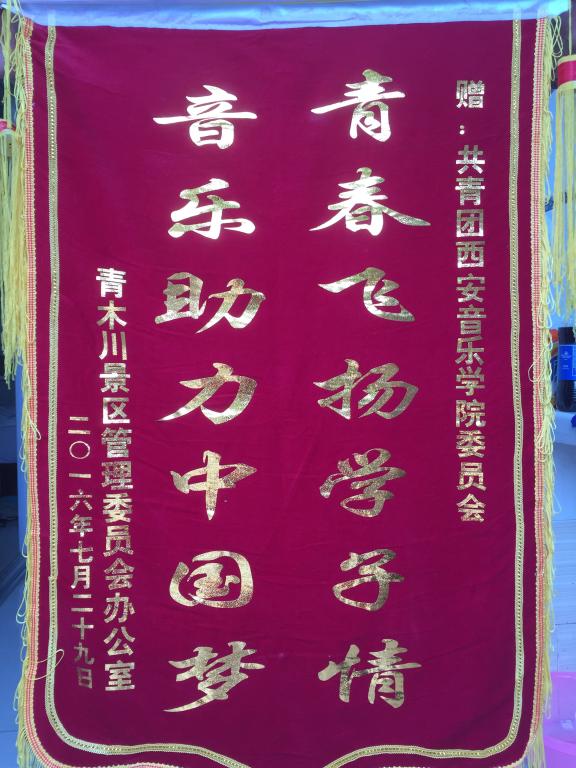 赠：共青团西安音乐学院委员会
青春飞扬学子情
音乐助力中国梦
青木川景区管理委员会办公室
二〇一六年七月二十九日